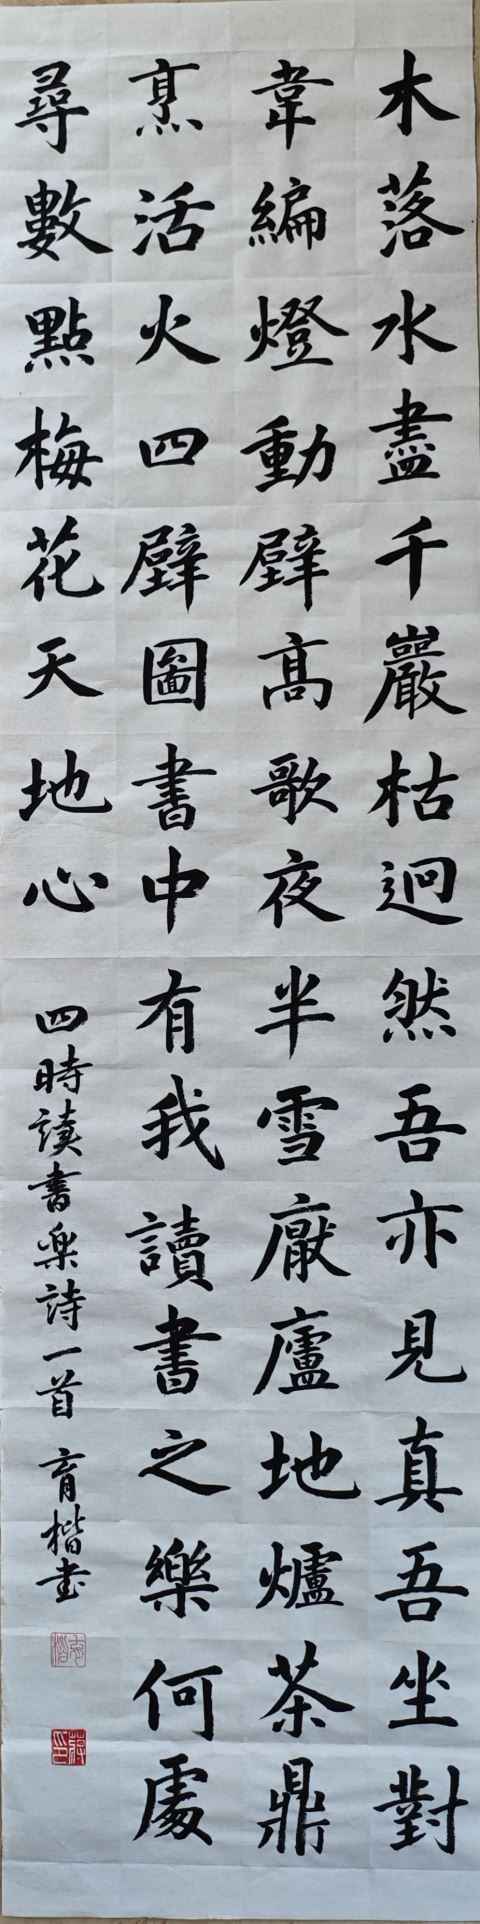 木落水盡千巖枯迥然吾亦見真吾坐對
韋編燈動壁高歌夜半雪厭廬地爐茶鼎
烹活火四壁圖書中有我讀書之樂何處
尋數點梅花天地心
四時讀書楽詩一首 育楷書